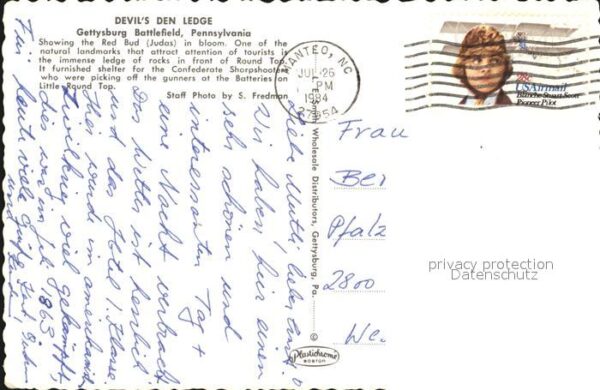 DEVIL'S DEN LEDGE
Gettysburg Battlefield, Pennsylvania
Showing the Red Bud (Judas) in bloom. One of the
natural landmarks that attract attention of tourists is
the immense ledge of rocks in front of Round Top.
It furnished shelter for the Confederate Sharpshooters
who were picking off the gunners at the Batteries on
Little Round Top.
Staff Photo by S. Fredman
MANTEO, NC
JUL 26
PM
1984
27954
28c
USAirmail
Blanche Stuart Scott
Pioneer Pilot
Wholesale Distributors, Gettysburg, Pa.
Liebe Mutti, lieber
Wir haben hier einen
sehr schönen und
interessanten Tag +
eine Nacht verbracht
Das Wetter ist herrlich
und das Hotel 1. Klasse
Hier wurde im amerikan.
viel gekämpft,
war im 1863
heute viele
und
Frau
Ber
Pfalz
2800
We.
privacy protection
Datenschutz
©
Plastichrome
BOSTON